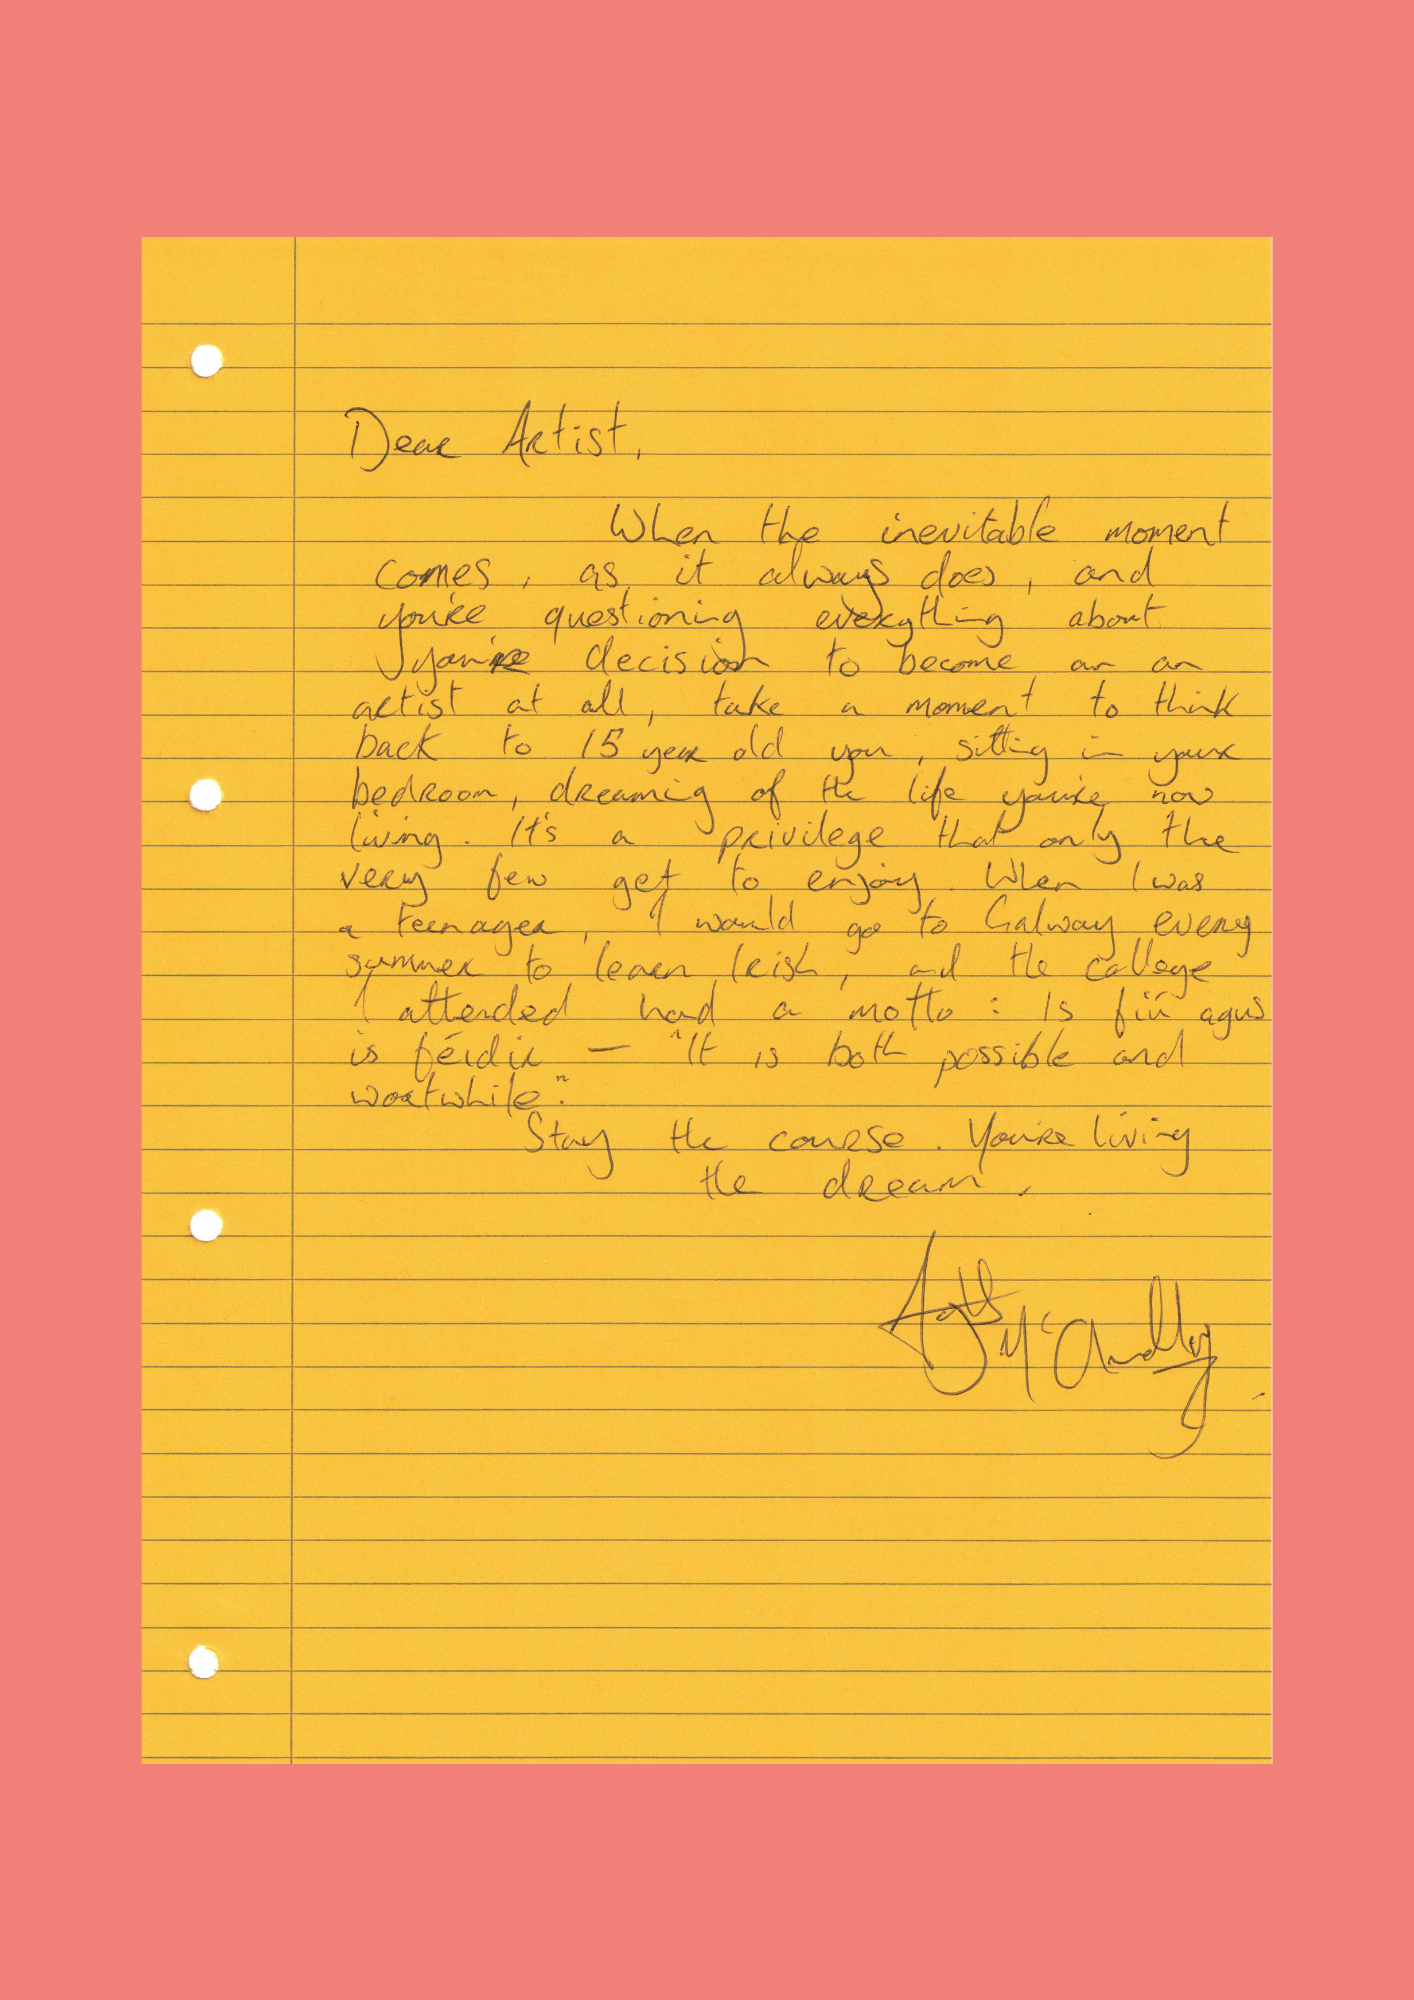 Dear Artist,
When the inevitable moment
comes, as it always does, and
you're questioning everything about
you're decision to become an an
artist at all, take a moment to think
back to 15 year old you, sitting in your
bedroom, dreaming of the life you're now
living. It's a privilege that only the
very few get to enjoy. When I was
a teenager, I would go to Galway every
summer to learn Irish, and the college
I attended had a motto: Is fiú agus
is féidir — "It is both possible and
wortwhile".
Stay the course. You're living
the dream.
McAnulty